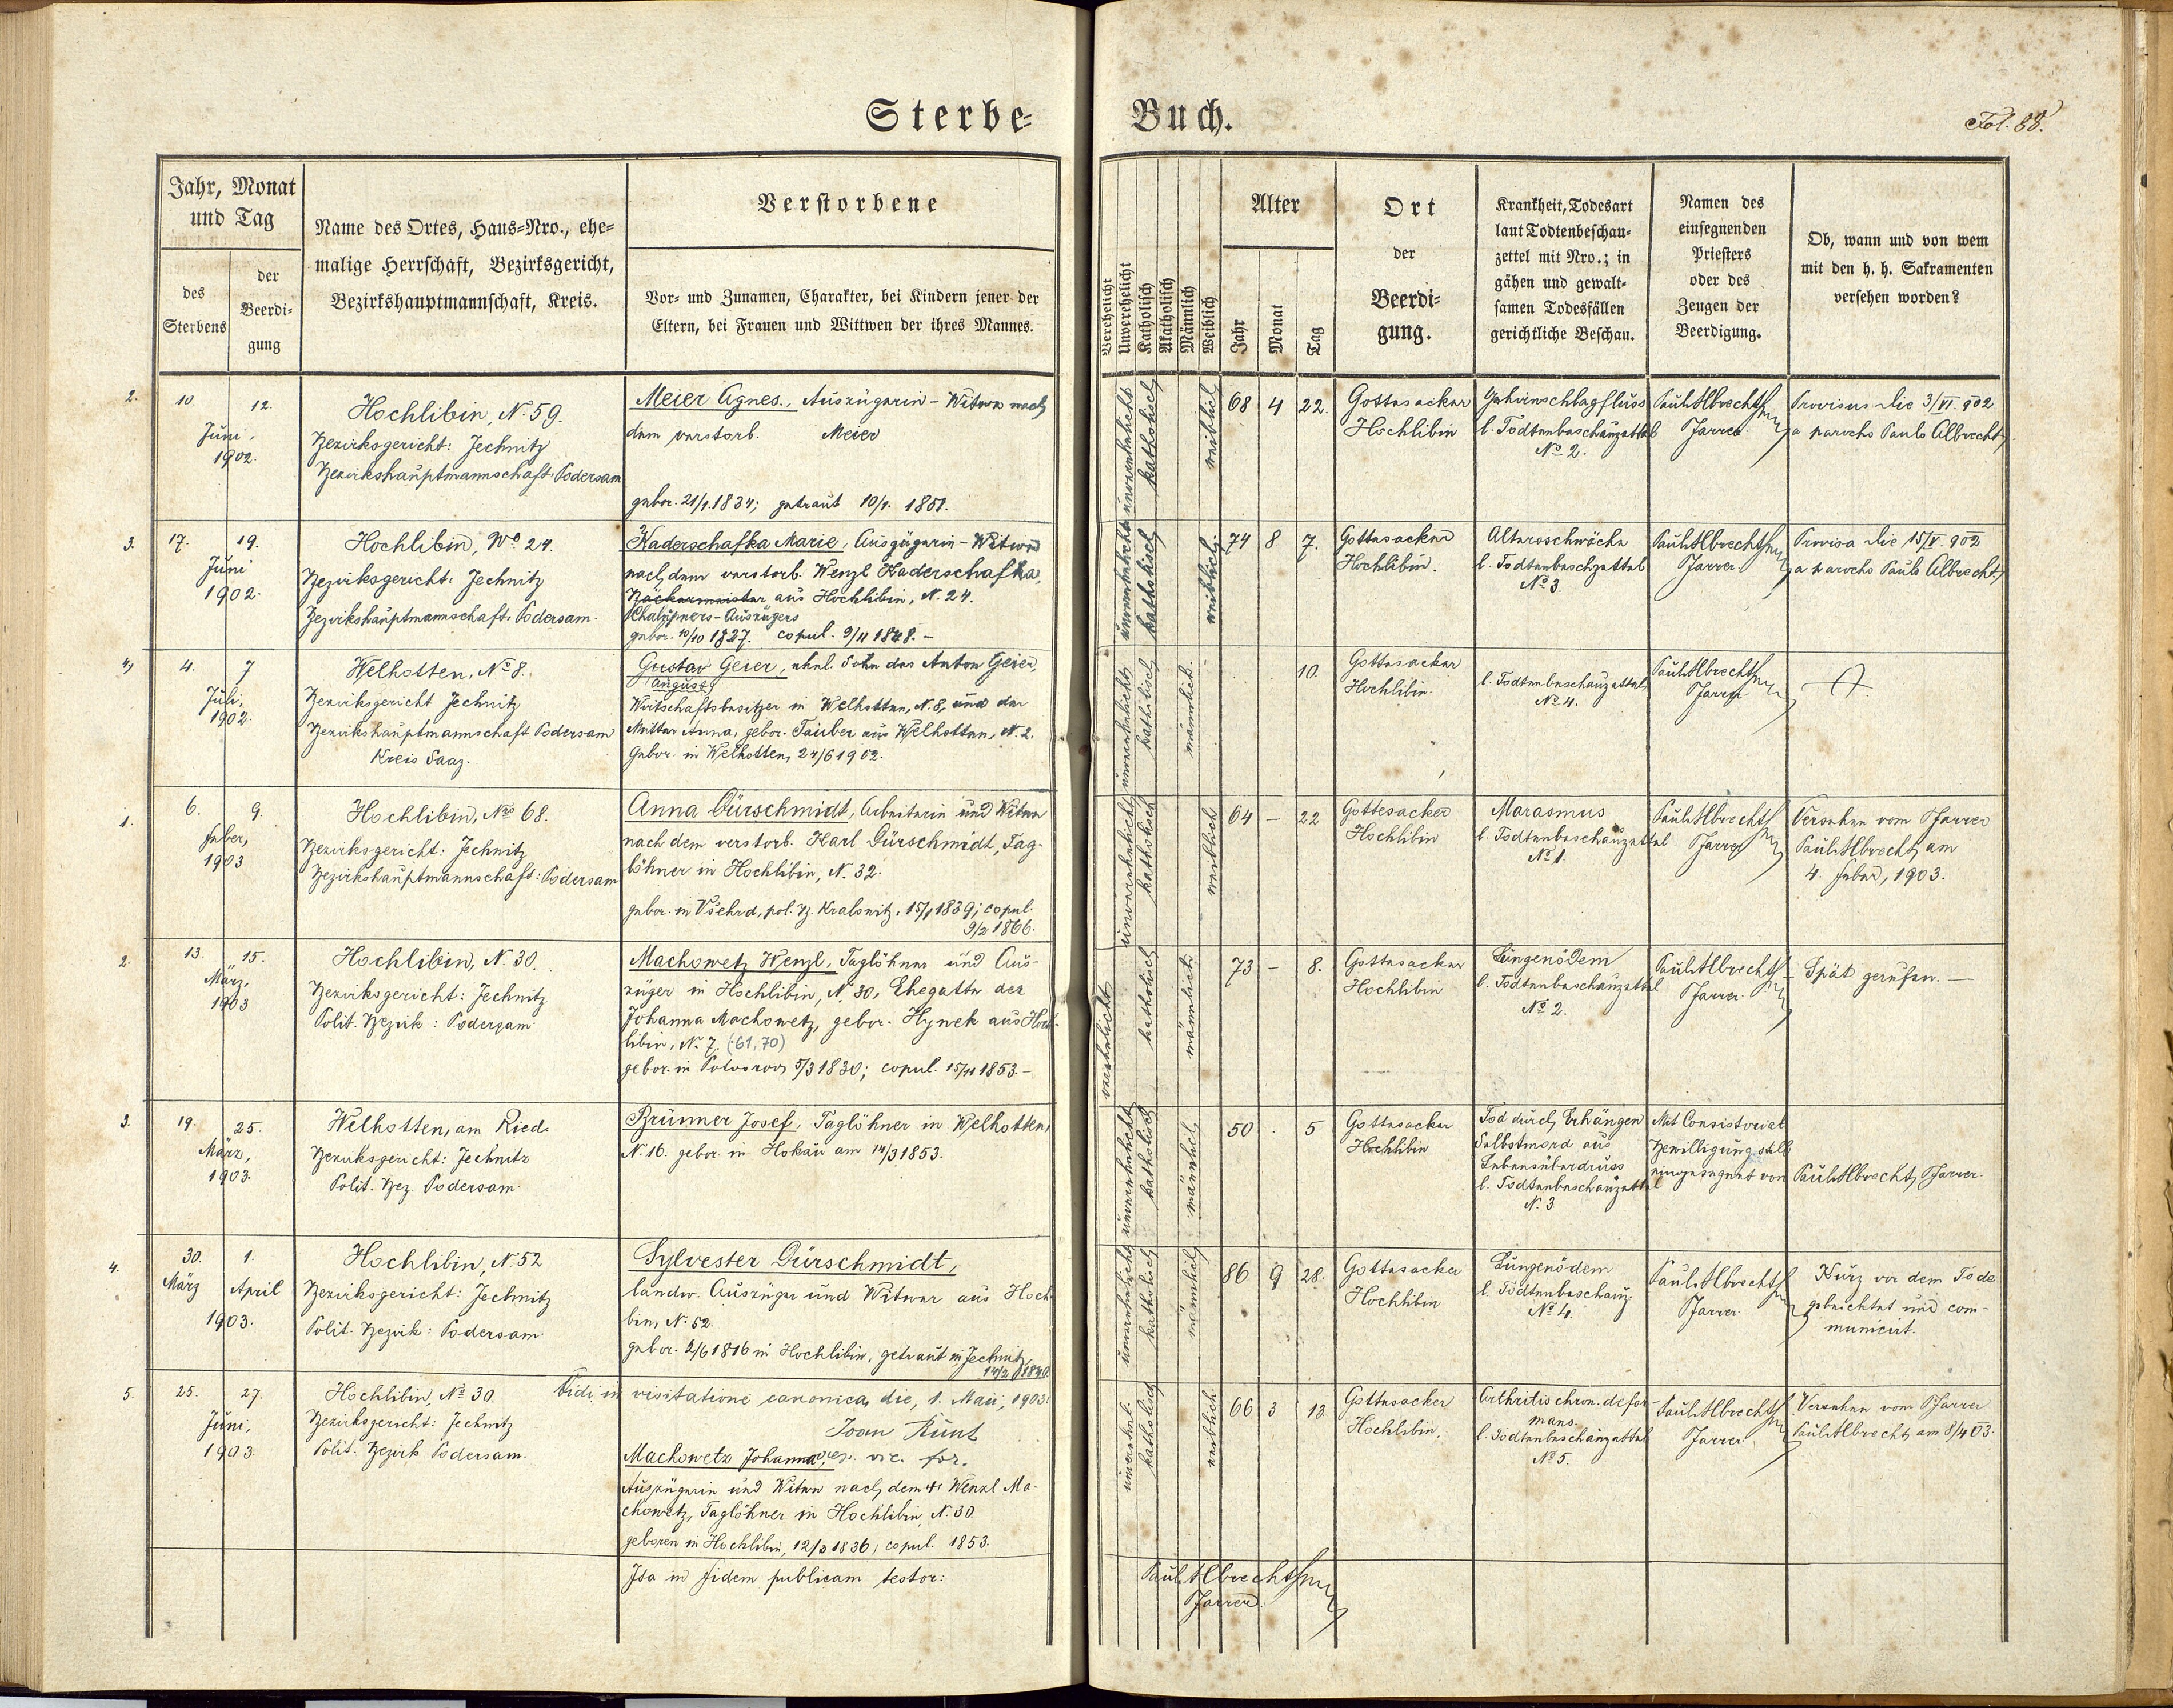 Sterbe-
Buch.
Fol. 88.
Jahr, Monat
und Tag
des
Sterbens
der
Beerdi-
gung
Name des Ortes, Haus-Nro., ehe-
malige Herrschaft, Bezirksgericht,
Bezirkshauptmannschaft, Kreis.
Verstorbene
Vor- und Zunamen, Charakter, bei Kindern jener der
Eltern, bei Frauen und Wittwen der ihres Mannes.
Verehelicht
Unverehelicht
Katholisch
Akatholisch
Männlich
Weiblich
Alter
Jahr
Monat
Tag
Ort
der
Beerdi-
gung.
Krankheit, Todesart
laut Todtenbeschau-
zettel mit Nro.; in
gähen und gewalt-
samen Todesfällen
gerichtliche Beschau.
Namen des
einsegnenden
Priesters
oder des
Zeugen der
Beerdigung.
Ob, wann und von wem
mit den h. h. Sakramenten
versehen worden?
2.
10.
12.
Juni,
1902.
Hochlibin, N. 59.
Bezirksgericht: Jechnitz
Bezirkshauptmannschaft: Podersam
Meier Agnes., Auszügerin - Witwe nach
dem verstorb. Meier
gebor. 21/1.1834; getraut 10/9. 1851.
unverehelicht
katholisch
weiblich
68 4 22.
Gottesacker
Hochlibin
Gehirnschlagfluss
l. Todtenbeschauzettel
No 2.
Paul Albrecht
Pfarrer
Provisus die 3/VI. 902
a parocho Paulo Albrecht.
3.
17.
19.
Juni
1902.
Hochlibin, No 24.
Bezirksgericht: Jechnitz
Bezirkshauptmannschaft: Podersam.
Kaderschafka Marie, Auszügerin - Witwe
nach dem verstorb. Wenzl Kaderschafka,
Bäckermeister aus Hochlibin, N. 24.
Chaluppners-Auszügers
gebor. 10/10 1827. copul. 9/11 1848. -
unverehelicht
katholisch
weiblich
74 8 7.
Gottesacker
Hochlibin.
Altersschwäche
l. Todtenbeschzettel
No 3.
Paul Albrecht
Pfarrer
Provisa die 15/V. 902
a parocho Paulo Albrecht
4)
4.
7
Juli,
1902.
Welhotten, No 8.
Bezirksgericht Jechnitz
Bezirkshauptmannschaft Podersam
Kreis Saaz.
Gustav Geier, ehel. Sohn des Anton Geier,
August
Wirtschaftsbesitzer in Welhotten, N. 8, und der
Mutter Anna, gebor. Tauber aus Welhotten, N. 2.
Gebor. in Welhotten, 24/6 1902.
unverehelicht
katholisch
männlich.
10.
Gottesacker
Hochlibin
l. Todtenbeschauzettel
No 4.
Paul Albrecht
Pfarrer
1.
6.
9.
Feber,
1903
Hochlibin, No 68.
Bezirksgericht: Jechnitz
Bezirkshauptmannschaft: Podersam
Anna Dürschmidt, Arbeiterin und Witwe
nach dem verstorb. Karl Dürschmidt, Tag-
löhner in Hochlibin, N. 32.
gebor. in Všehrd, pol. Bz. Kralowitz, 15/1 1839; copul.
9/2 1866.
unverehelicht
katholisch
weiblich
64 - 22
Gottesacker
Hochlibin
Marasmus
l. Todtenbeschauzettel
No 1.
Paul Albrecht
Pfarrer
Versehen vom Pfarrer
Paul Albrecht, am
4. Feber, 1903.
2.
13.
15.
März,
1903
Hochlibin, N. 30.
Bezirksgericht: Jechnitz
Polit. Bezirk: Podersam.
Machowetz Wenzl, Taglöhner und Aus-
züger in Hochlibin, N. 30, Ehegatte der
Johanna Machowetz, gebor. Hynek aus Hoch-
libin, No 7. (61, 70)
gebor. in 5/3 1830; copul. 15/11 1853. -
verehelicht
katholisch
männlich
73 - 8.
Gottesacker
Hochlibin
Lungenödem
l. Todtenbeschauzettel
No 2.
Paul Albrecht
Pfarrer.
- Spät gerufen. -
3.
19.
25.
März,
1903.
Welhotten, am Ried.
Bezirksgericht: Jechnitz
Polit. Bez Podersam.
Brunner Josef, Taglöhner in Welhotten,
N. 16. gebor. in Hokau am 14/3 1853.
unverehelicht
katholisch
männlich
50 . 5
Gottesacker
Hochlibin
Tod durch Erhängen
Selbstmord aus
Lebensüberdruss
l. Todtenbeschauzettel
N. 3
Mit Consistorial
Bewilligung still
eingesegnet von Paul Albrecht, Pfarrer.
4.
30.
1.
März April
1903.
Hochlibin, N. 52
Bezirksgericht: Jechnitz
Polit. Bezirk: Podersam.
Sylvester Dürschmidt,
landw. Auszüger und Witwer aus Hochli-
bin, N. 52.
gebor. 2/6 1816 in Hochlibin, getraut in Jechnitz,
14/2 1840.
unverehelicht
katholisch
männlich
86 9 28.
Gottesacker
Hochlibin
Lungenödem
l. Todtenbeschauz.
No 4.
Paul Albrecht
Pfarrer
Kurz vor dem Tode
gebeichtet und com-
municirt.
Vidi in visitatione canonica die, 1. Maii, 1903.
Joan Kunt
vic. for.
5.
25.
27.
Juni,
1903
Hochlibin, No 30.
Bezirksgericht: Jechnitz
Polit. Bezirk Podersam.
Machowetz Johanna,
Auszügerin und Witwe nach dem † Wenzl Ma-
chowetz, Taglöhner in Hochlibin, N. 30.
geboren in Hochlibin, 12/3 1836, copul. 1853.
unverehel.
katholisch
weiblich
66 3 13
Gottesacker
Hochlibin.
Arthritis chron. defor-
mans.
l. Todtenbeschauzettel
No 5.
Paul Albrecht
Pfarrer
Versehen vom Pfarrer
Paul Albrecht, am 8/4 03.
Ita in fidem publicam testor:
Paul Albrecht
Pfarrer.